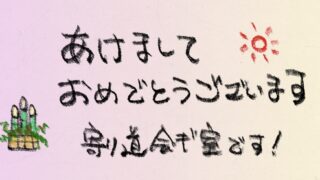 あけまして
おめでとうございます
寄り道会ギ室です!